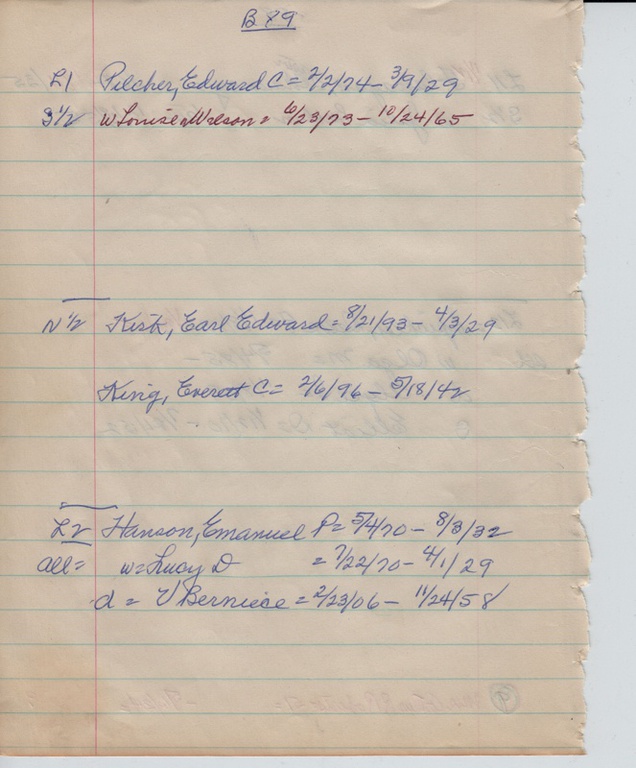 B 89
L1 Pilcher, Edward C = 2/2/74 - 3/9/29
S 1/2 w Louise Wilson = 6/23/73 - 10/24/65
N 1/2 Kisk, Earl Edward = 8/21/93 - 4/3/29
King, Everett C = 2/6/96 - 5/18/42
L2 Hanson, Emanuel P = 5/4/70 - 8/3/32
all = w = Lucy D = 7/22/70 - 4/1/29
d = V Berniece = 2/23/06 - 11/24/58